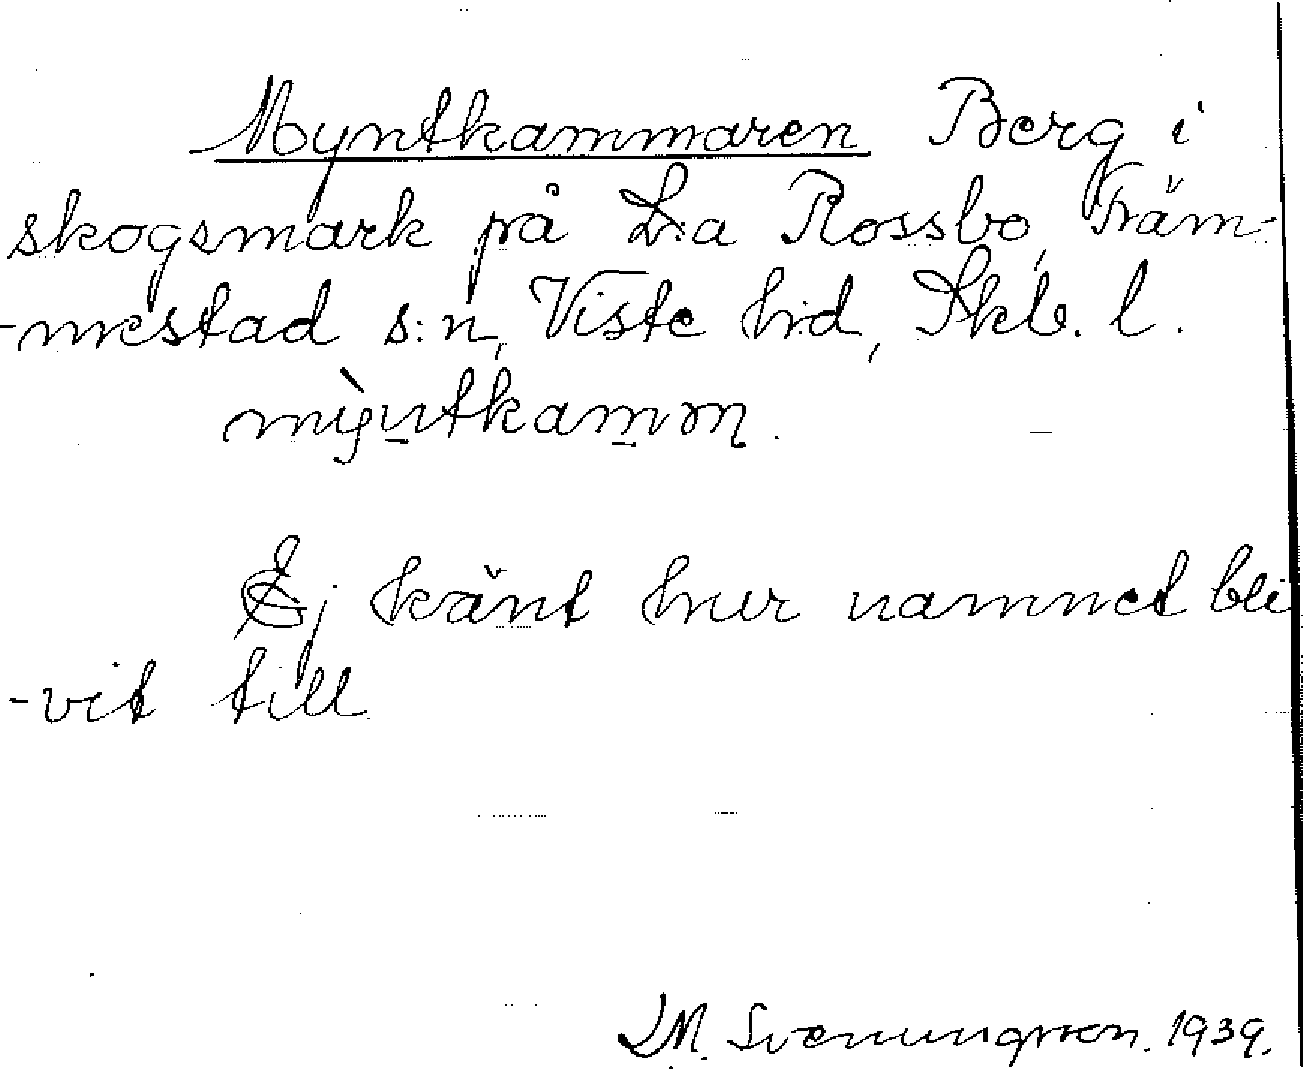 Myntkammaren Berg i
skogsmark på L:a Rossbo, Träm-
-mestad s:n, Viste hrd, Skb. l.
Ej känt hur namnet bli
-vit till
LM. Svenungsson. 1939.